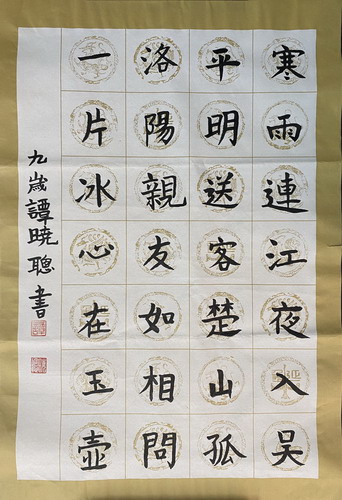 寒雨連江夜入吴
平明送客楚山孤
洛陽親友如相問
一片冰心在玉壺
九歲譚曉聰書